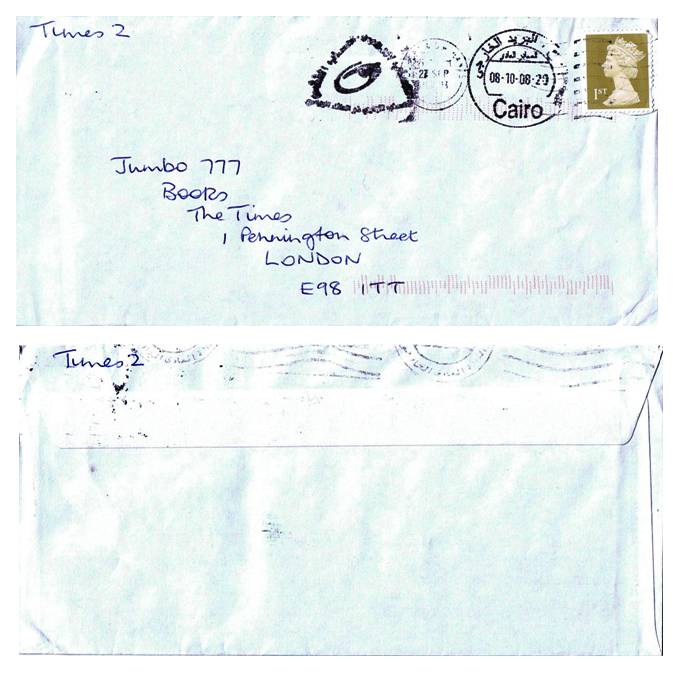 Times 2
البريد الخارجي
08-10-08-20
Cairo
23 SEP
1ST
Jumbo 777
Books
The Times
1 Pennington Street
LONDON
E98 1TT
Times 2